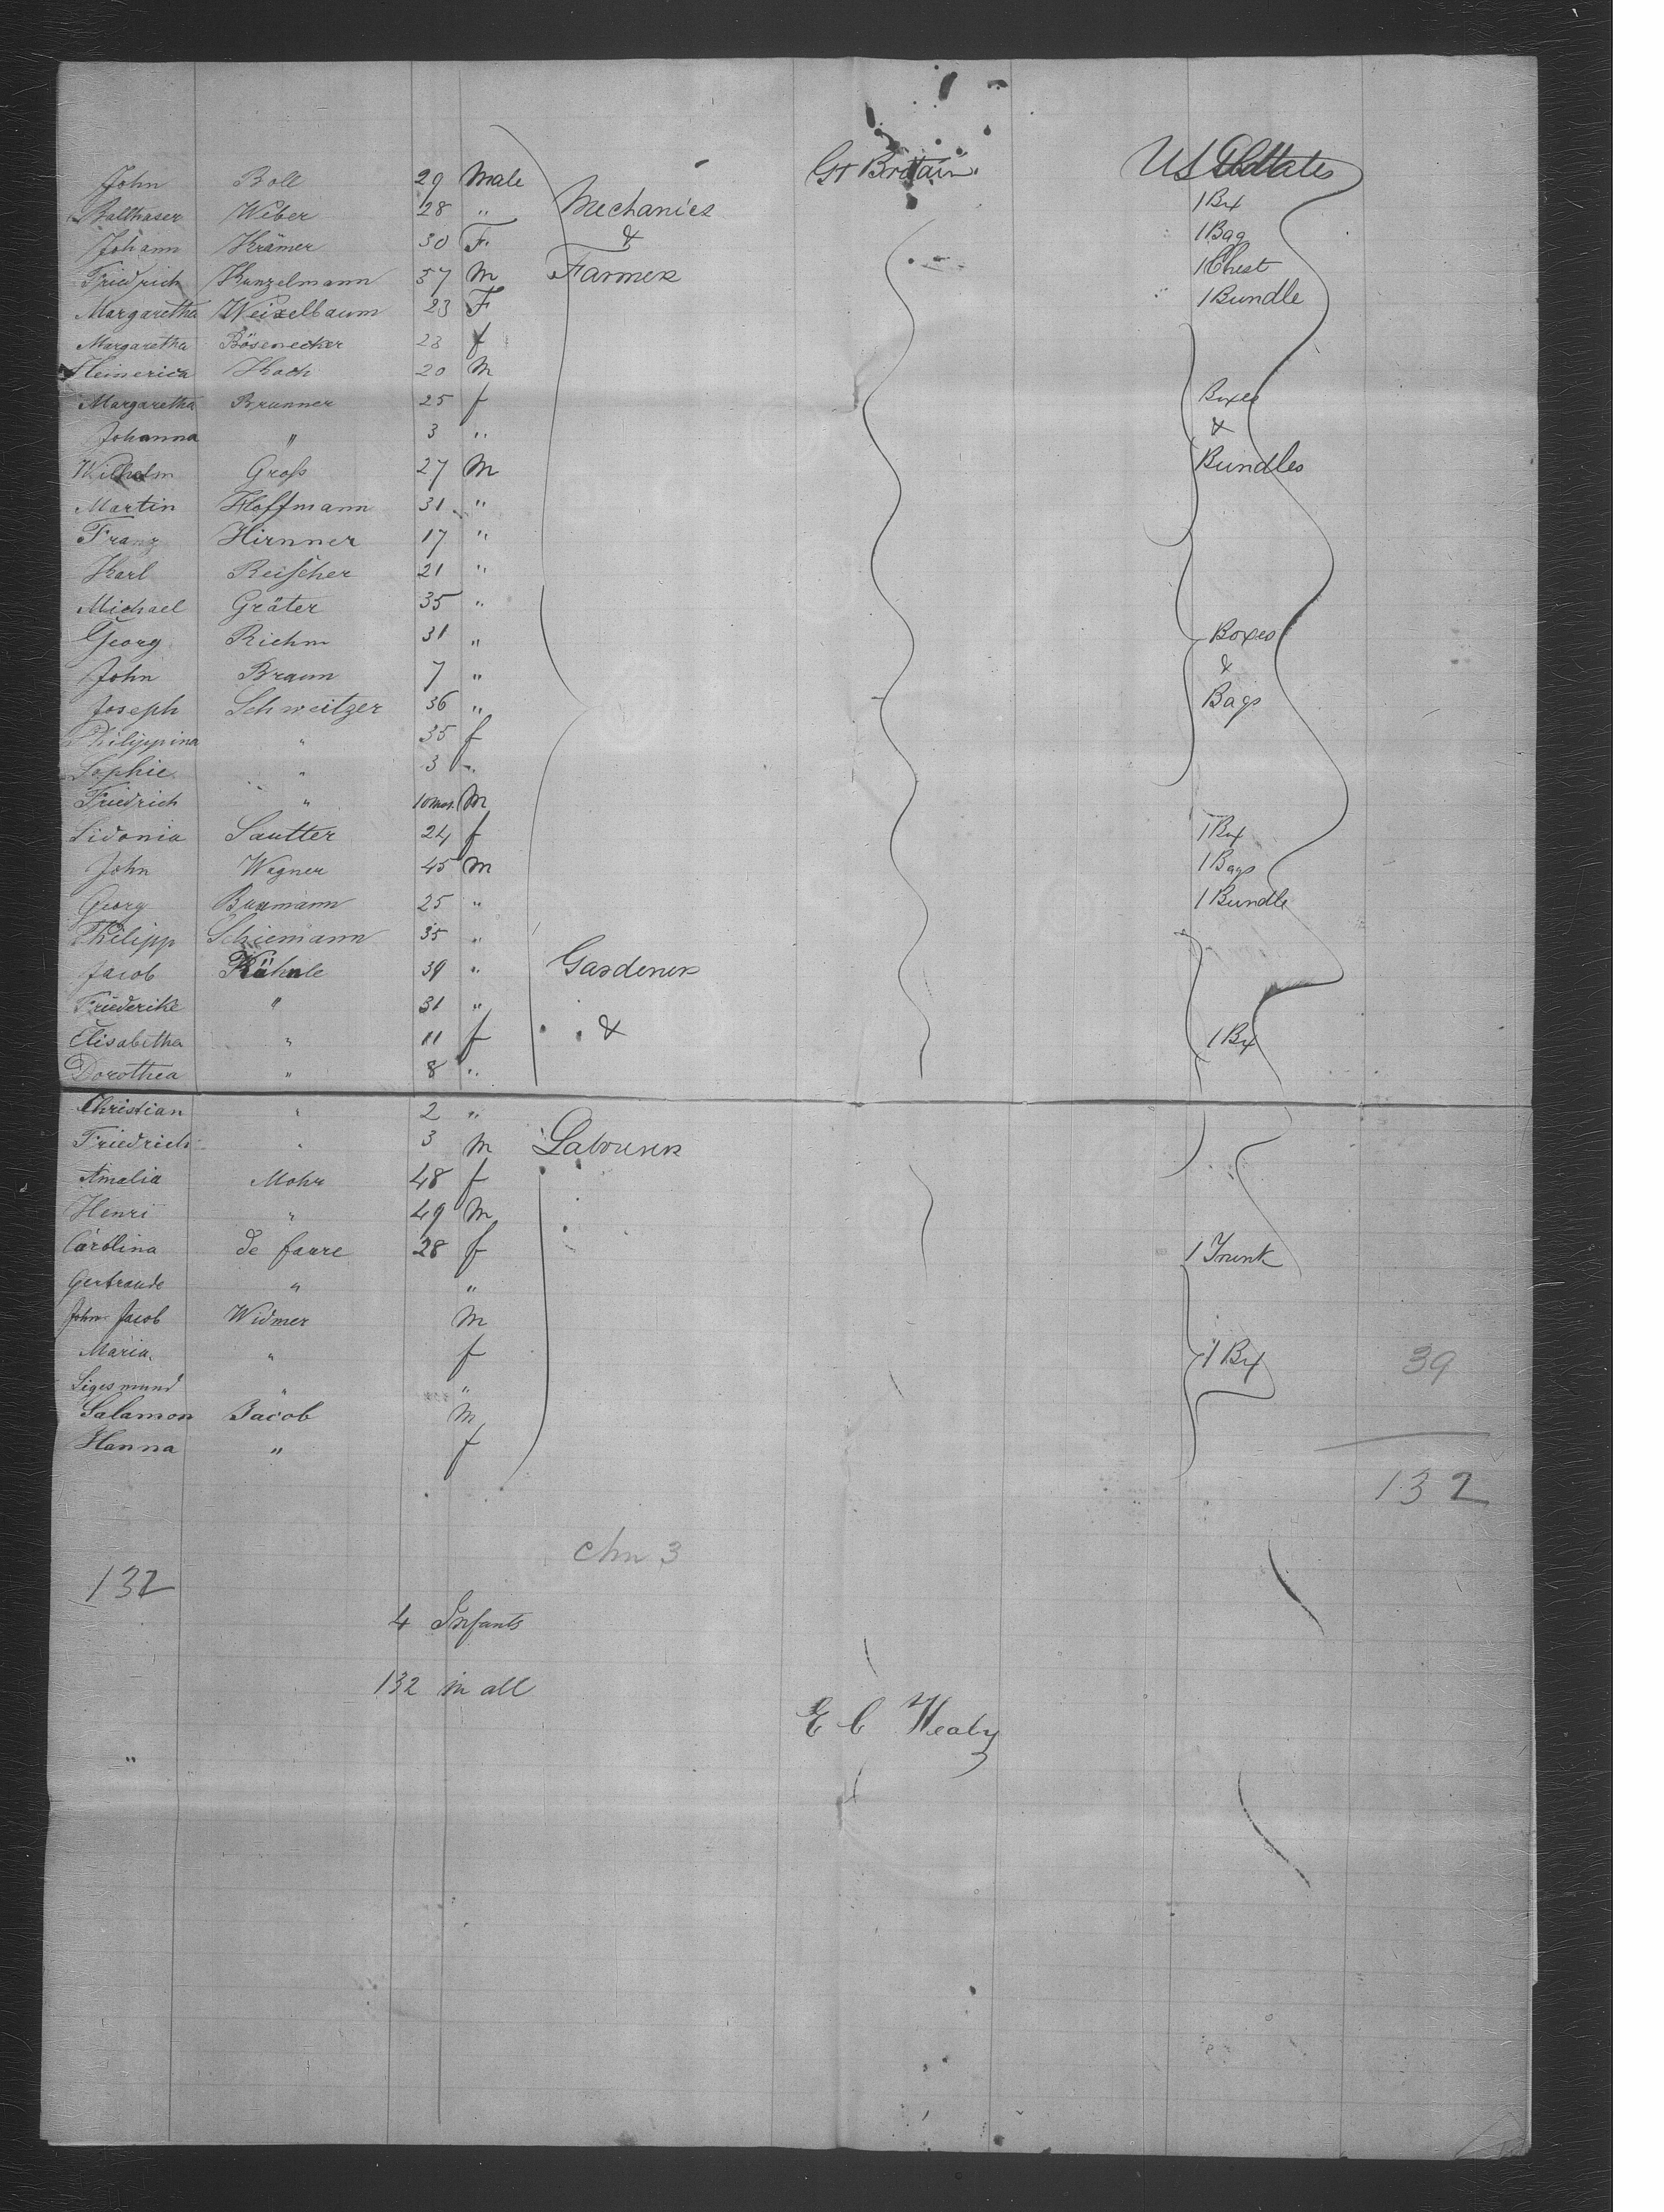 John Boll 29 Male Gt Britain US States
Balthaser Weber 28 " Mechanics 1 Bx
Johann Krämer 30 F. & 1 Bag
Friedrich Kunzelmann 57 M Farmers 1 Chest
Margaretha Weixelbaum 23 F 1 Bundle
Margaretha Bösenecker 23 f
Heinerica Koch 20 M
Margaretha Brunner 25 f Boxes
Johanna " 3 " &
Wilhelm Groß 27 M Bundles
Martin Hoffmann 31 "
Franz Hirnner 17 "
Karl Reischer 21 "
Michael Gräter 35 "
Georg Riehm 31 " Boxes
John Braun 7 " &
Joseph Schweitzer 36 " Bags
Philippina " 35 f
Sophie " 3 "
Friedrich " 10 mos. M
Sidonia Sautter 24 f 1 Bx
John Wagner 45 M 1 Bags
Georg Baumann 25 " 1 Bundle
Philipp Schiemann 35 "
Jacob Kühnle 39 " Gardeners
Friederike " 31 "
Elisabetha " 11 f & 1 Bx
Dorothea " 8 "
Christian " 2 "
Friedrich " 3 M Labourers
Amalia Mohr 48 f
Henri " 49 M
Carolina de faure 28 f 1 Trunk
Gertraude " "
John Jacob Widmer M
Maria " f 1 Bx 39
Sigesmund " "
Salamon Jacob M
Hanna " f
132
chn 3
132
4 Infants
132 in all
E C Healy
"